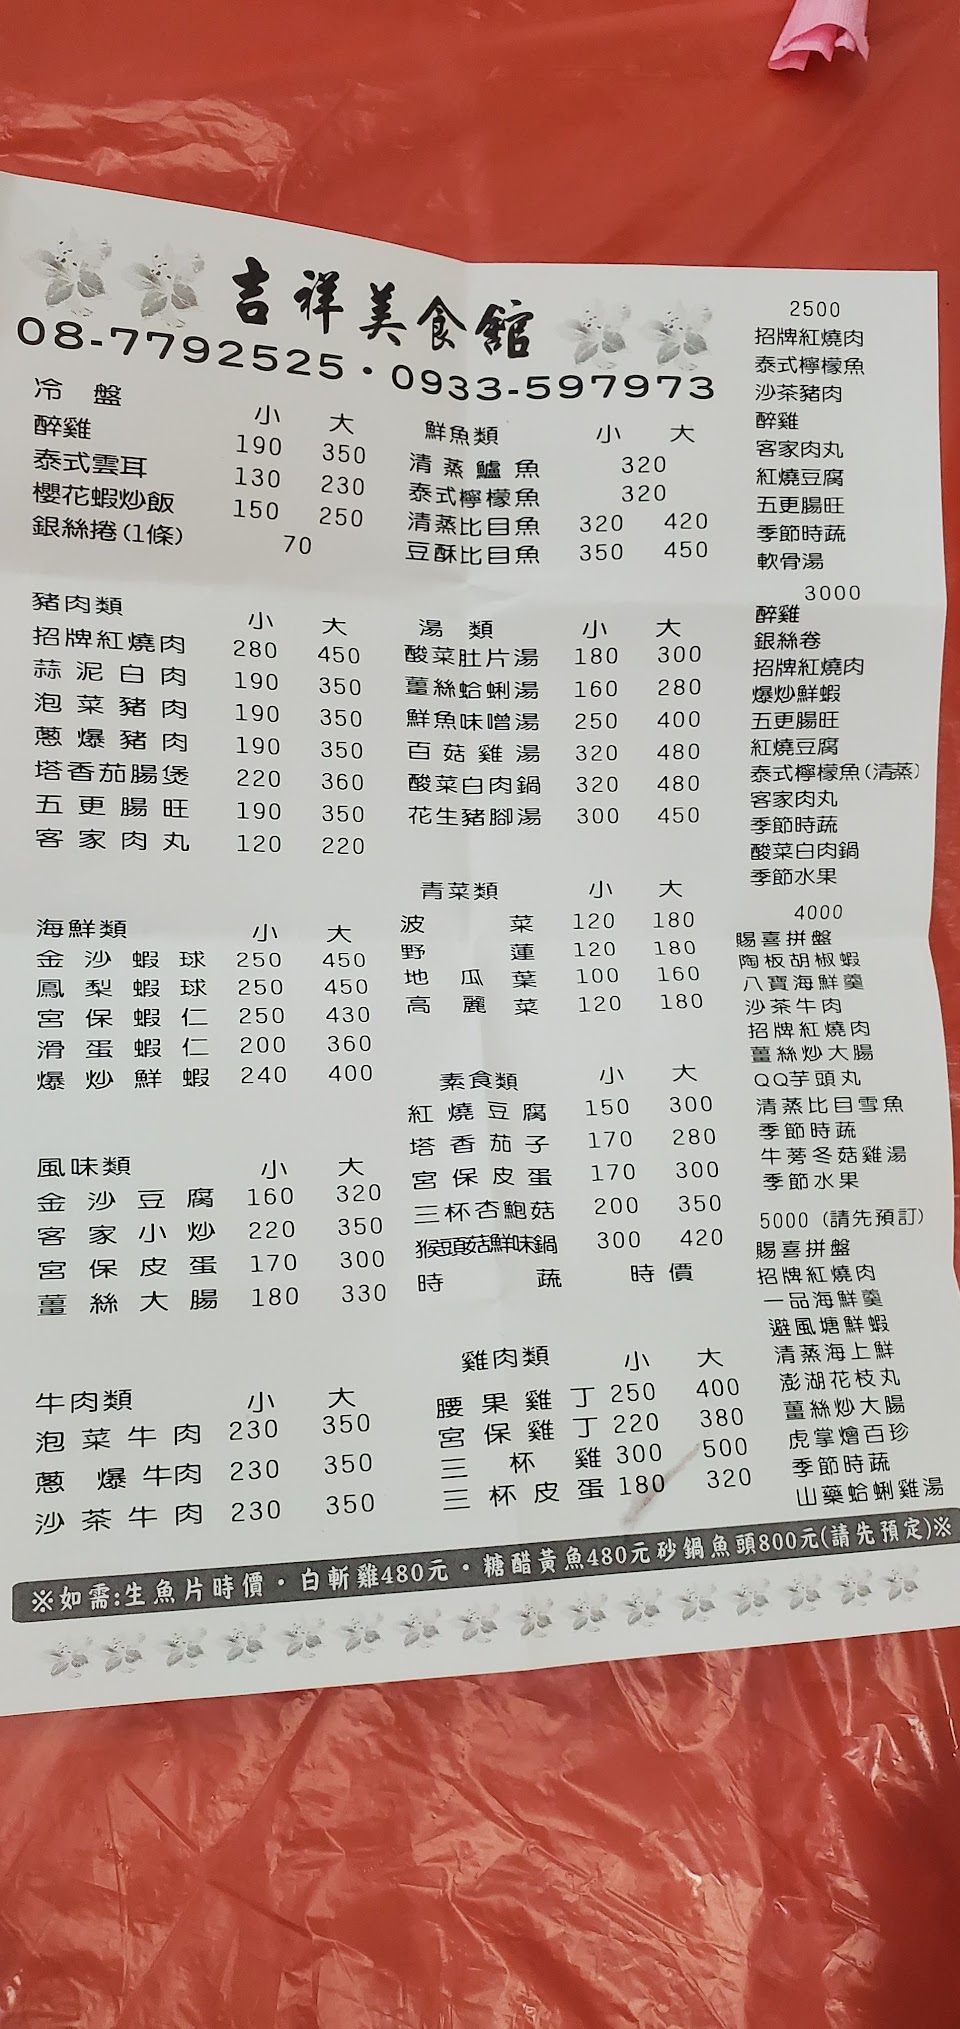 吉祥美食舘
08-7792525・0933-597973
冷盤 小 大
醉雞 190 350
泰式雲耳 130 230
櫻花蝦炒飯 150 250
銀絲捲(1條) 70
豬肉類 小 大
招牌紅燒肉 280 450
蒜泥白肉 190 350
泡菜豬肉 190 350
蔥爆豬肉 190 350
塔香茄腸煲 220 360
五更腸旺 190 350
客家肉丸 120 220
海鮮類 小 大
金沙蝦球 250 450
鳳梨蝦球 250 450
宮保蝦仁 250 430
滑蛋蝦仁 200 360
爆炒鮮蝦 240 400
風味類 小 大
金沙豆腐 160 320
客家小炒 220 350
宮保皮蛋 170 300
薑絲大腸 180 330
牛肉類 小 大
泡菜牛肉 230 350
蔥爆牛肉 230 350
沙茶牛肉 230 350
鮮魚類 小 大
清蒸鱸魚 320
泰式檸檬魚 320
清蒸比目魚 320 420
豆酥比目魚 350 450
湯類 小 大
酸菜肚片湯 180 300
薑絲蛤蜊湯 160 280
鮮魚味噌湯 250 400
百菇雞湯 320 480
酸菜白肉鍋 320 480
花生豬腳湯 300 450
青菜類 小 大
波菜 120 180
野蓮 120 180
地瓜葉 100 160
高麗菜 120 180
素食類 小 大
紅燒豆腐 150 300
塔香茄子 170 280
宮保皮蛋 170 300
三杯杏鮑菇 200 350
猴頭菇鮮味鍋 300 420
時蔬 時價
雞肉類 小 大
腰果雞丁 250 400
宮保雞丁 220 380
三杯雞 300 500
三杯皮蛋 180 320
2500
招牌紅燒肉
泰式檸檬魚
沙茶豬肉
醉雞
客家肉丸
紅燒豆腐
五更腸旺
季節時蔬
軟骨湯
3000
醉雞
銀絲卷
招牌紅燒肉
爆炒鮮蝦
五更腸旺
紅燒豆腐
泰式檸檬魚(清蒸)
客家肉丸
季節時蔬
酸菜白肉鍋
季節水果
4000
賜喜拼盤
陶板胡椒蝦
八寶海鮮羹
沙茶牛肉
招牌紅燒肉
薑絲炒大腸
QQ芋頭丸
清蒸比目雪魚
季節時蔬
牛蒡冬菇雞湯
季節水果
5000 (請先預訂)
賜喜拼盤
招牌紅燒肉
一品海鮮羹
避風塘鮮蝦
清蒸海上鮮
澎湖花枝丸
薑絲炒大腸
虎掌燴百珍
季節時蔬
山藥蛤蜊雞湯
※如需:生魚片時價・白斬雞480元・糖醋黃魚480元砂鍋魚頭800元(請先預定)※